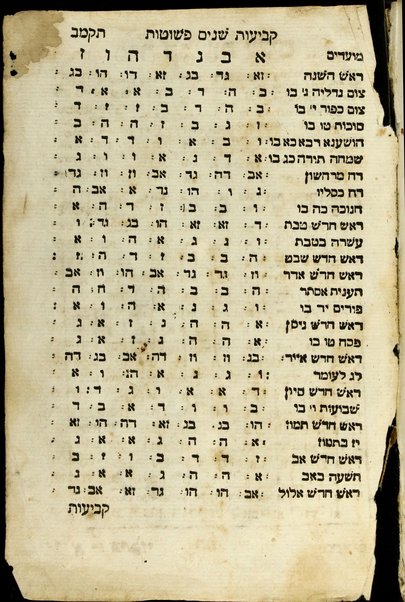 קביעות שנים פשוטות תקמב
מועדים א ב ג ד ה ו ז
ראש השנה זא : גד : בג : זא : דו : הו : בג
צום גדליה ג' בו ב : ה : ד : ב : א : א : ד
צום כפור י' בו
סוכות טו בו ו : ג : ב : ז : ה : ה : ב
הושענא רבא כא בו ו : ב : א : ו : ד : ד : א
שמחה תורה כג בו א : ד : ג : א : ו : ו : ג
רח מרחשון אב : דה : גד : אב : וז : וז : גד
רח כסליו ג : ו : הו : גד : א : אב : ה
חנוכה כה בו ו : ב : ב : ז : ד : ה : א
ראש חדש טבת ד : זא : זא : הו : בג : גד : ו
עשרה בטבת ו : ג : ג : א : ה : ו : א
ראש חדש שבט ה : ב : ב : ז : ד : ה : ז
ראש חדש אדר וז : גד : גד : אב : הו : וז : אב
תענית אסתר ה : ב : ב : ה : ד : ה : ה
פורים יד בו ו : ג : ג : א : ה : ו : א
ראש חדש ניסן א : ה : ה : ג : ז : א : ג
פסח טו בו א : ה : ה : ג : ז : א : ג
ראש חדש אייר בג : וז : וז : דה : אב : בג : דה
לג לעומר ו : ג : ג : א : ה : ו : א
ראש חדש סיון ד : א : א : ו : ג : ד : ו
שבועות ו' בו ב : ו : ו : ד : א : ב : ד
ראש חדש תמוז הו : בג : בג : זא : דה : הו : זא
יז בתמוז א : ה : ה : ג : א : א : ג
ראש חדש אב ז : ד : ד : ב : ו : ז : ב
תשעה באב א : ה : ה : ג : א : א : ג
ראש חדש אלול אב : הו : הו : גד : זא : אב : גד
קביעות